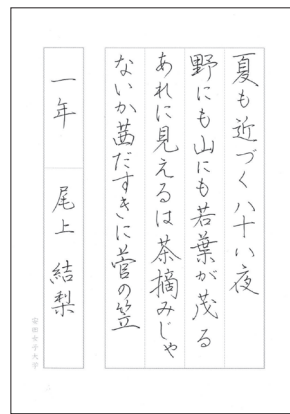 夏も近づく八十八夜
野にも山にも若葉が茂る
あれに見えるは茶摘みじゃ
ないか茜だすきに菅の笠
一年 尾上 結梨
安田女子大学